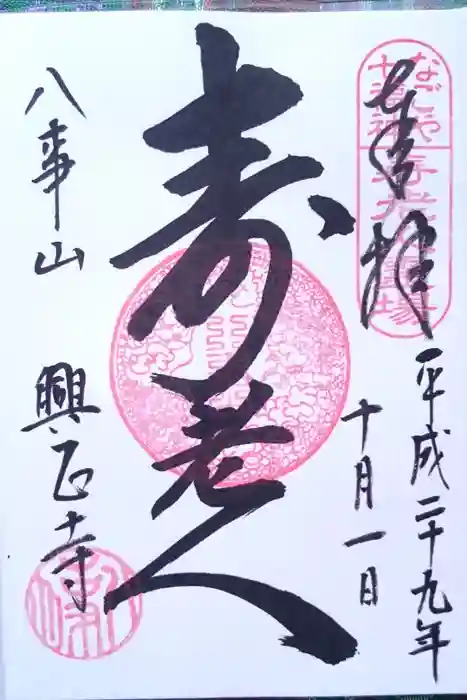 奉拝
平成二十九年
十月一日
寿老人
八事山
興正寺
なごや